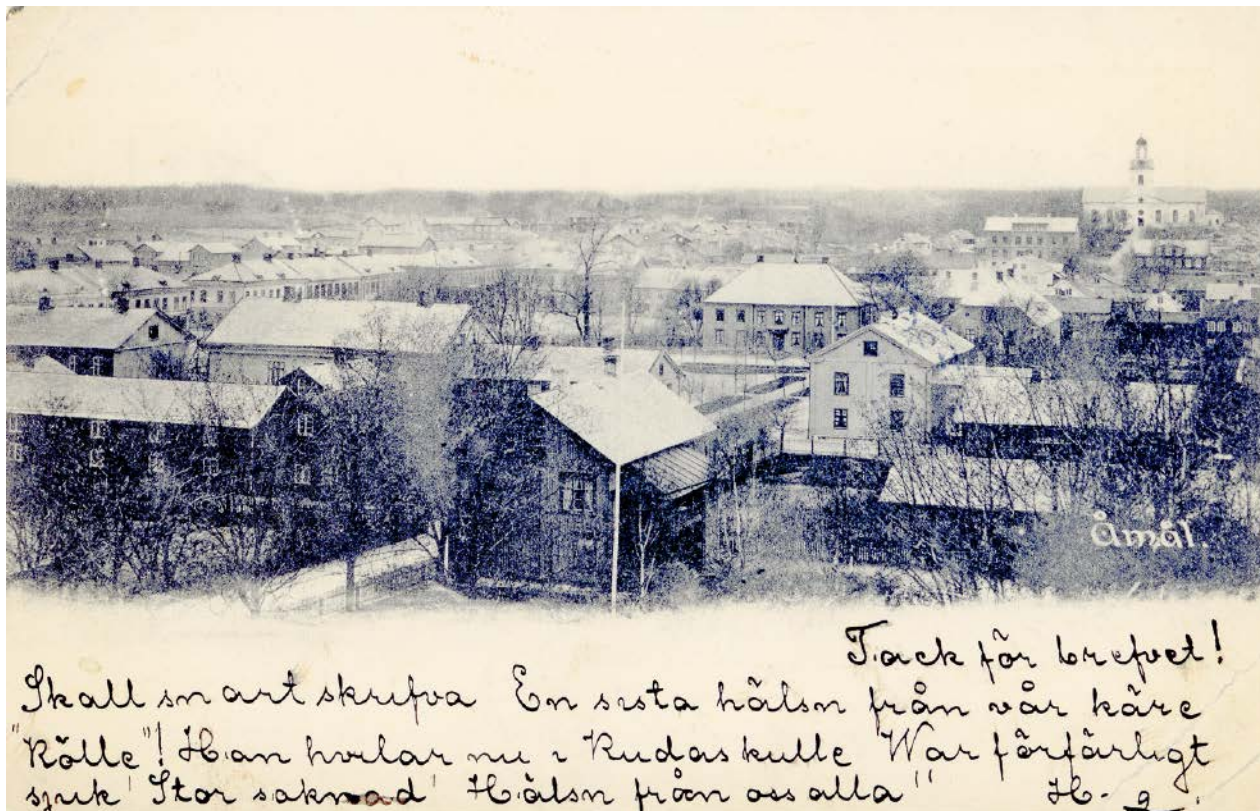 Åmål.
Tack för brefvet!
Skall snart skrifva En sista hälsn från vår käre
"Kölle"! Han hvilar nu i Rudaskulle War förfärligt
sjuk! Stor saknad! Hälsn från oss alla"  H-g.